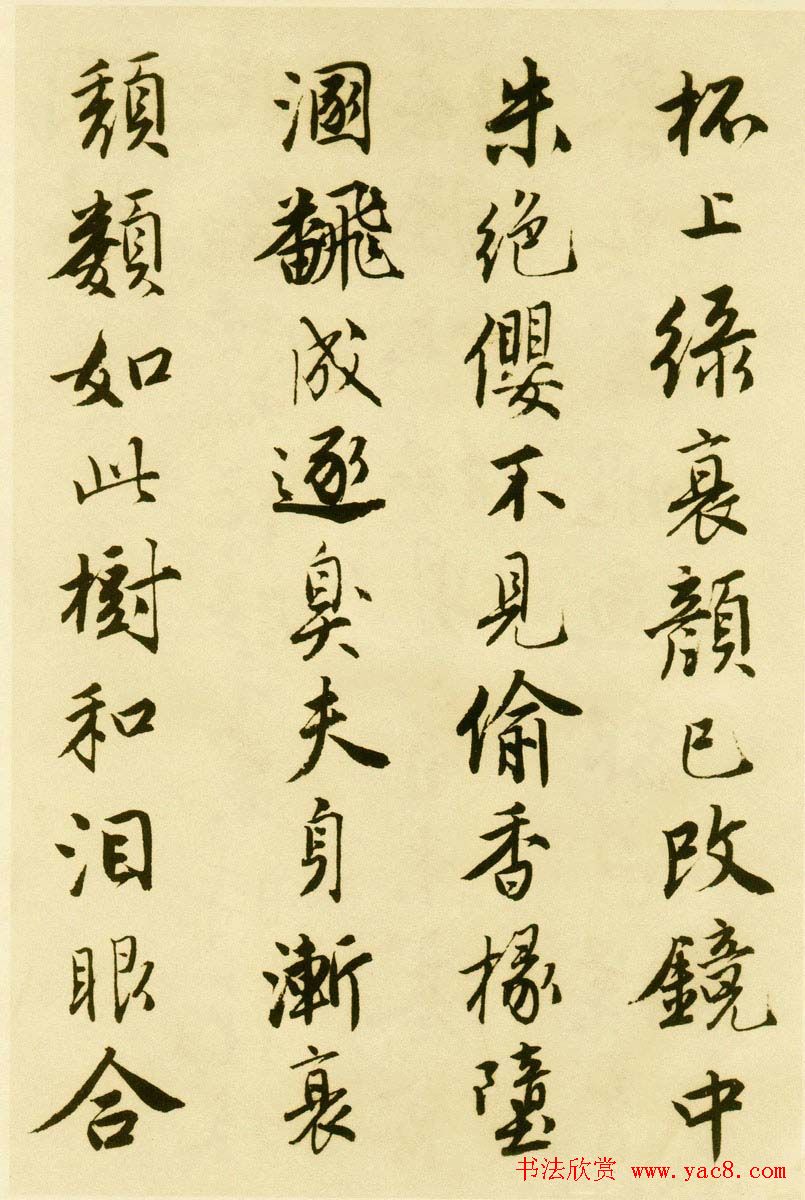 杯上緑衰顔已改鏡中
朱絶纓不見偷香椽墮
溷飜成逐臭夫身漸衰
頽類如此樹和泪眼合
书法欣赏 www.yac8.com